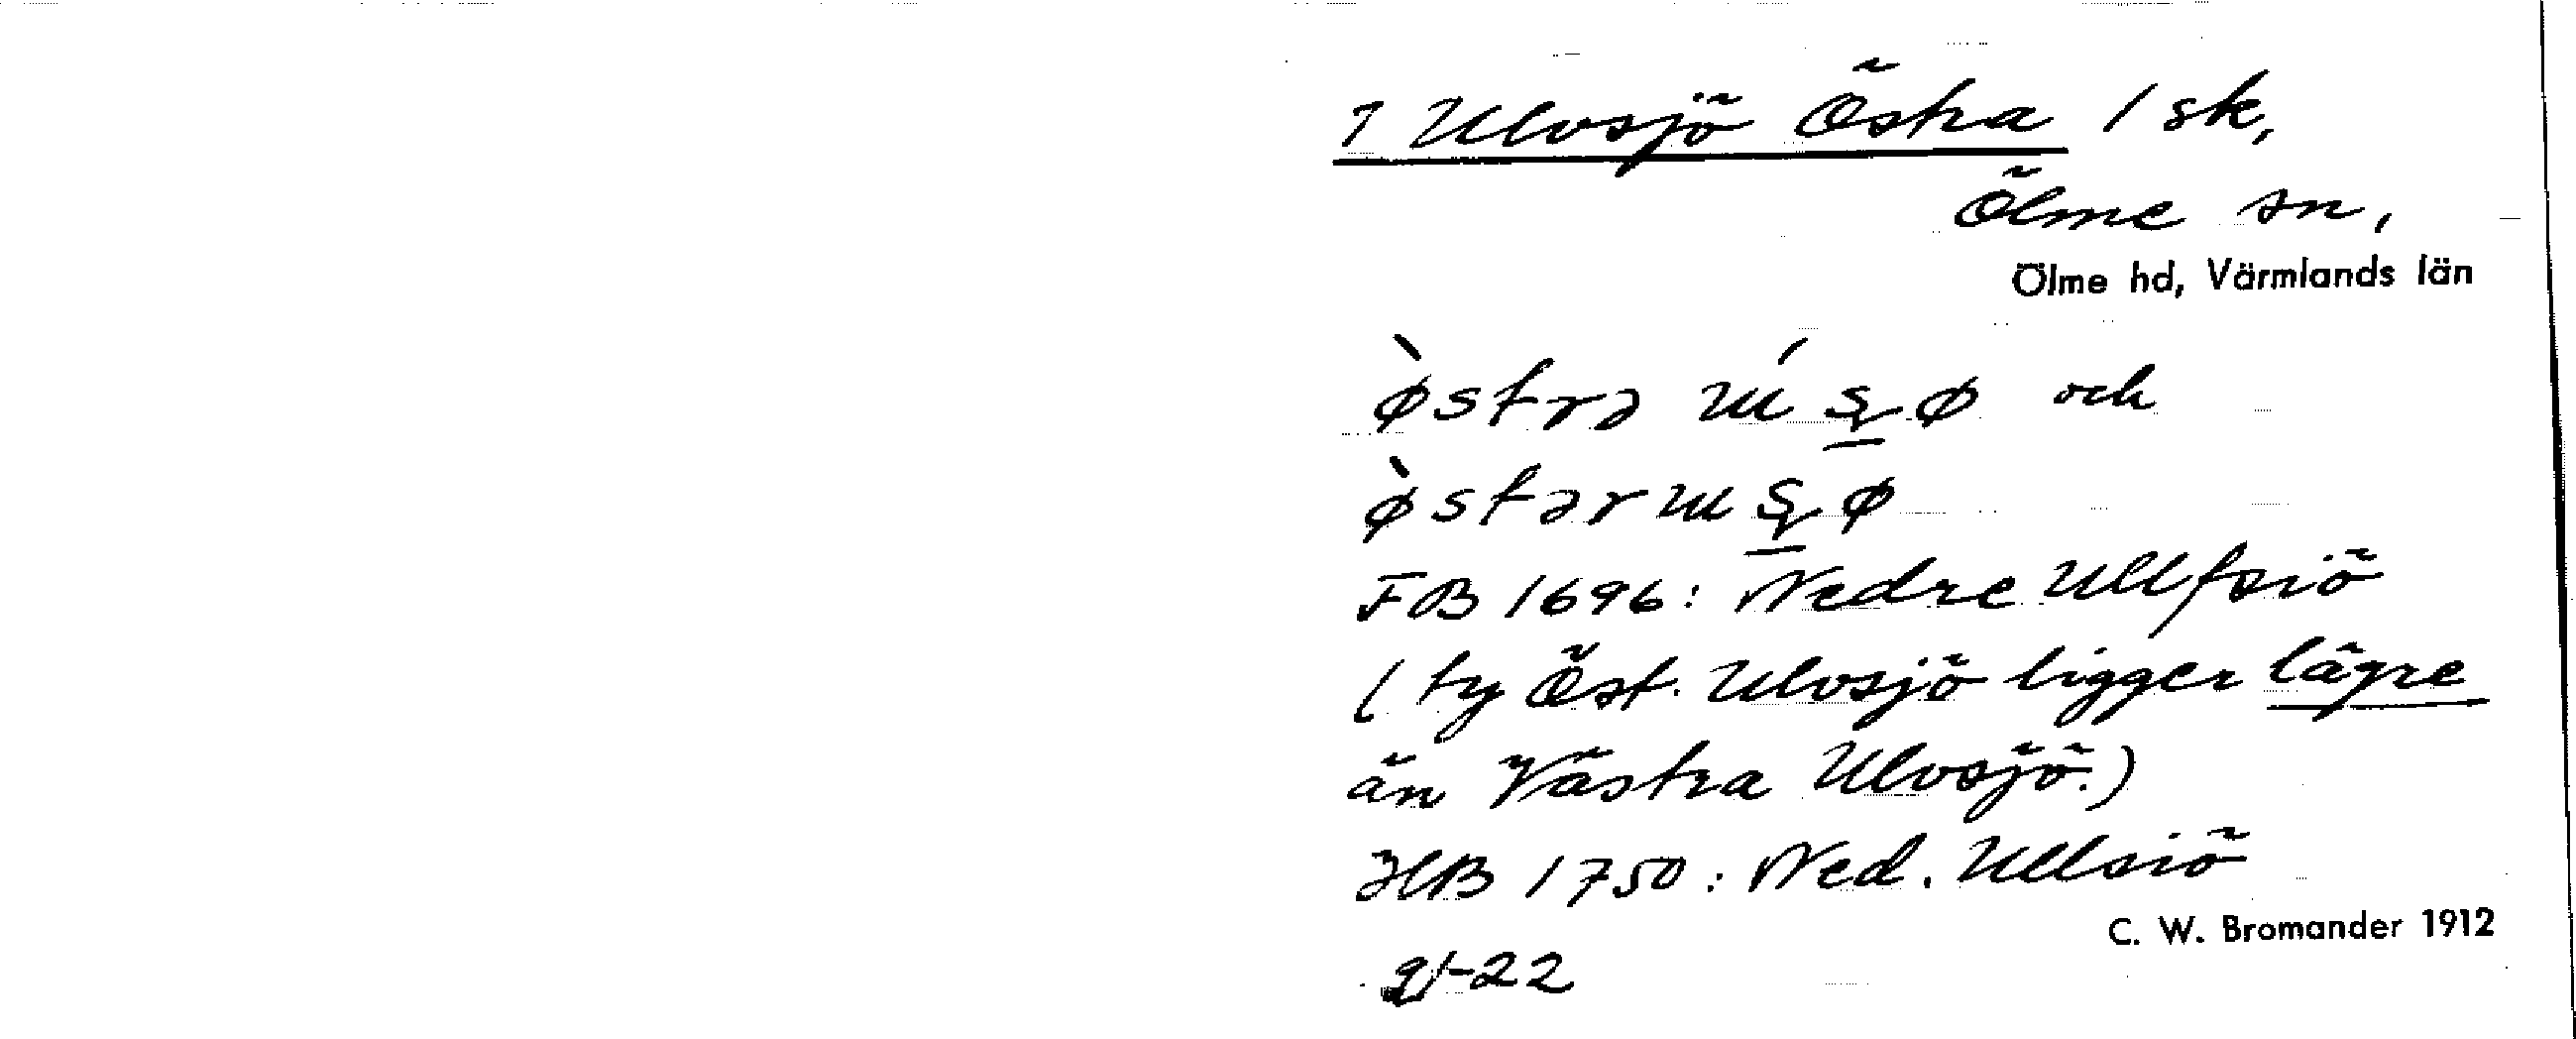 1 Ulvsjö Östra 1 sk,
Ölme sn,
Ölme hd, Värmlands län
och
FB 1696: Nedre Ullfsiö
(ty Öst. Ulvsjö ligger lägre
än Västra Ulvsjö.)
HB 1750: Ned. Ullsiö
C. W. Bromander 1912